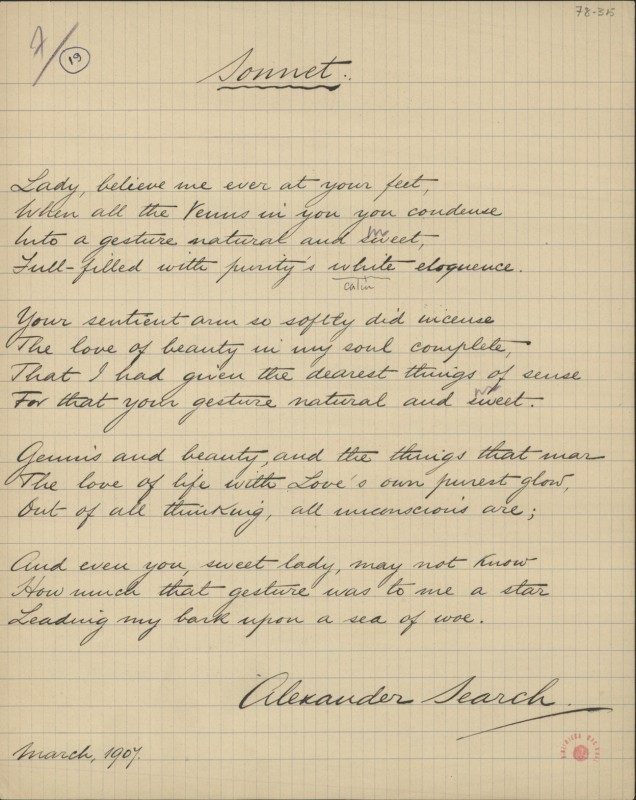 78-35
19
Sonnet.
Lady, believe me ever at your feet,
When all the Venus in you you condense
Into a gesture natural and sweet,
Full-filled with purity's white eloquence.
calm
Your sentient arm so softly did incense
The love of beauty in my soul complete,
That I had given the dearest things of sense
For that your gesture natural and sweet.
Genius and beauty, and the things that mar
The love of life with Love's own purest glow,
Out of all thinking, all unconscious are;
And even you, sweet lady, may not know
How much that gesture was to me a star
Leading my bark upon a sea of woe.
Alexander Search.
March, 1907.